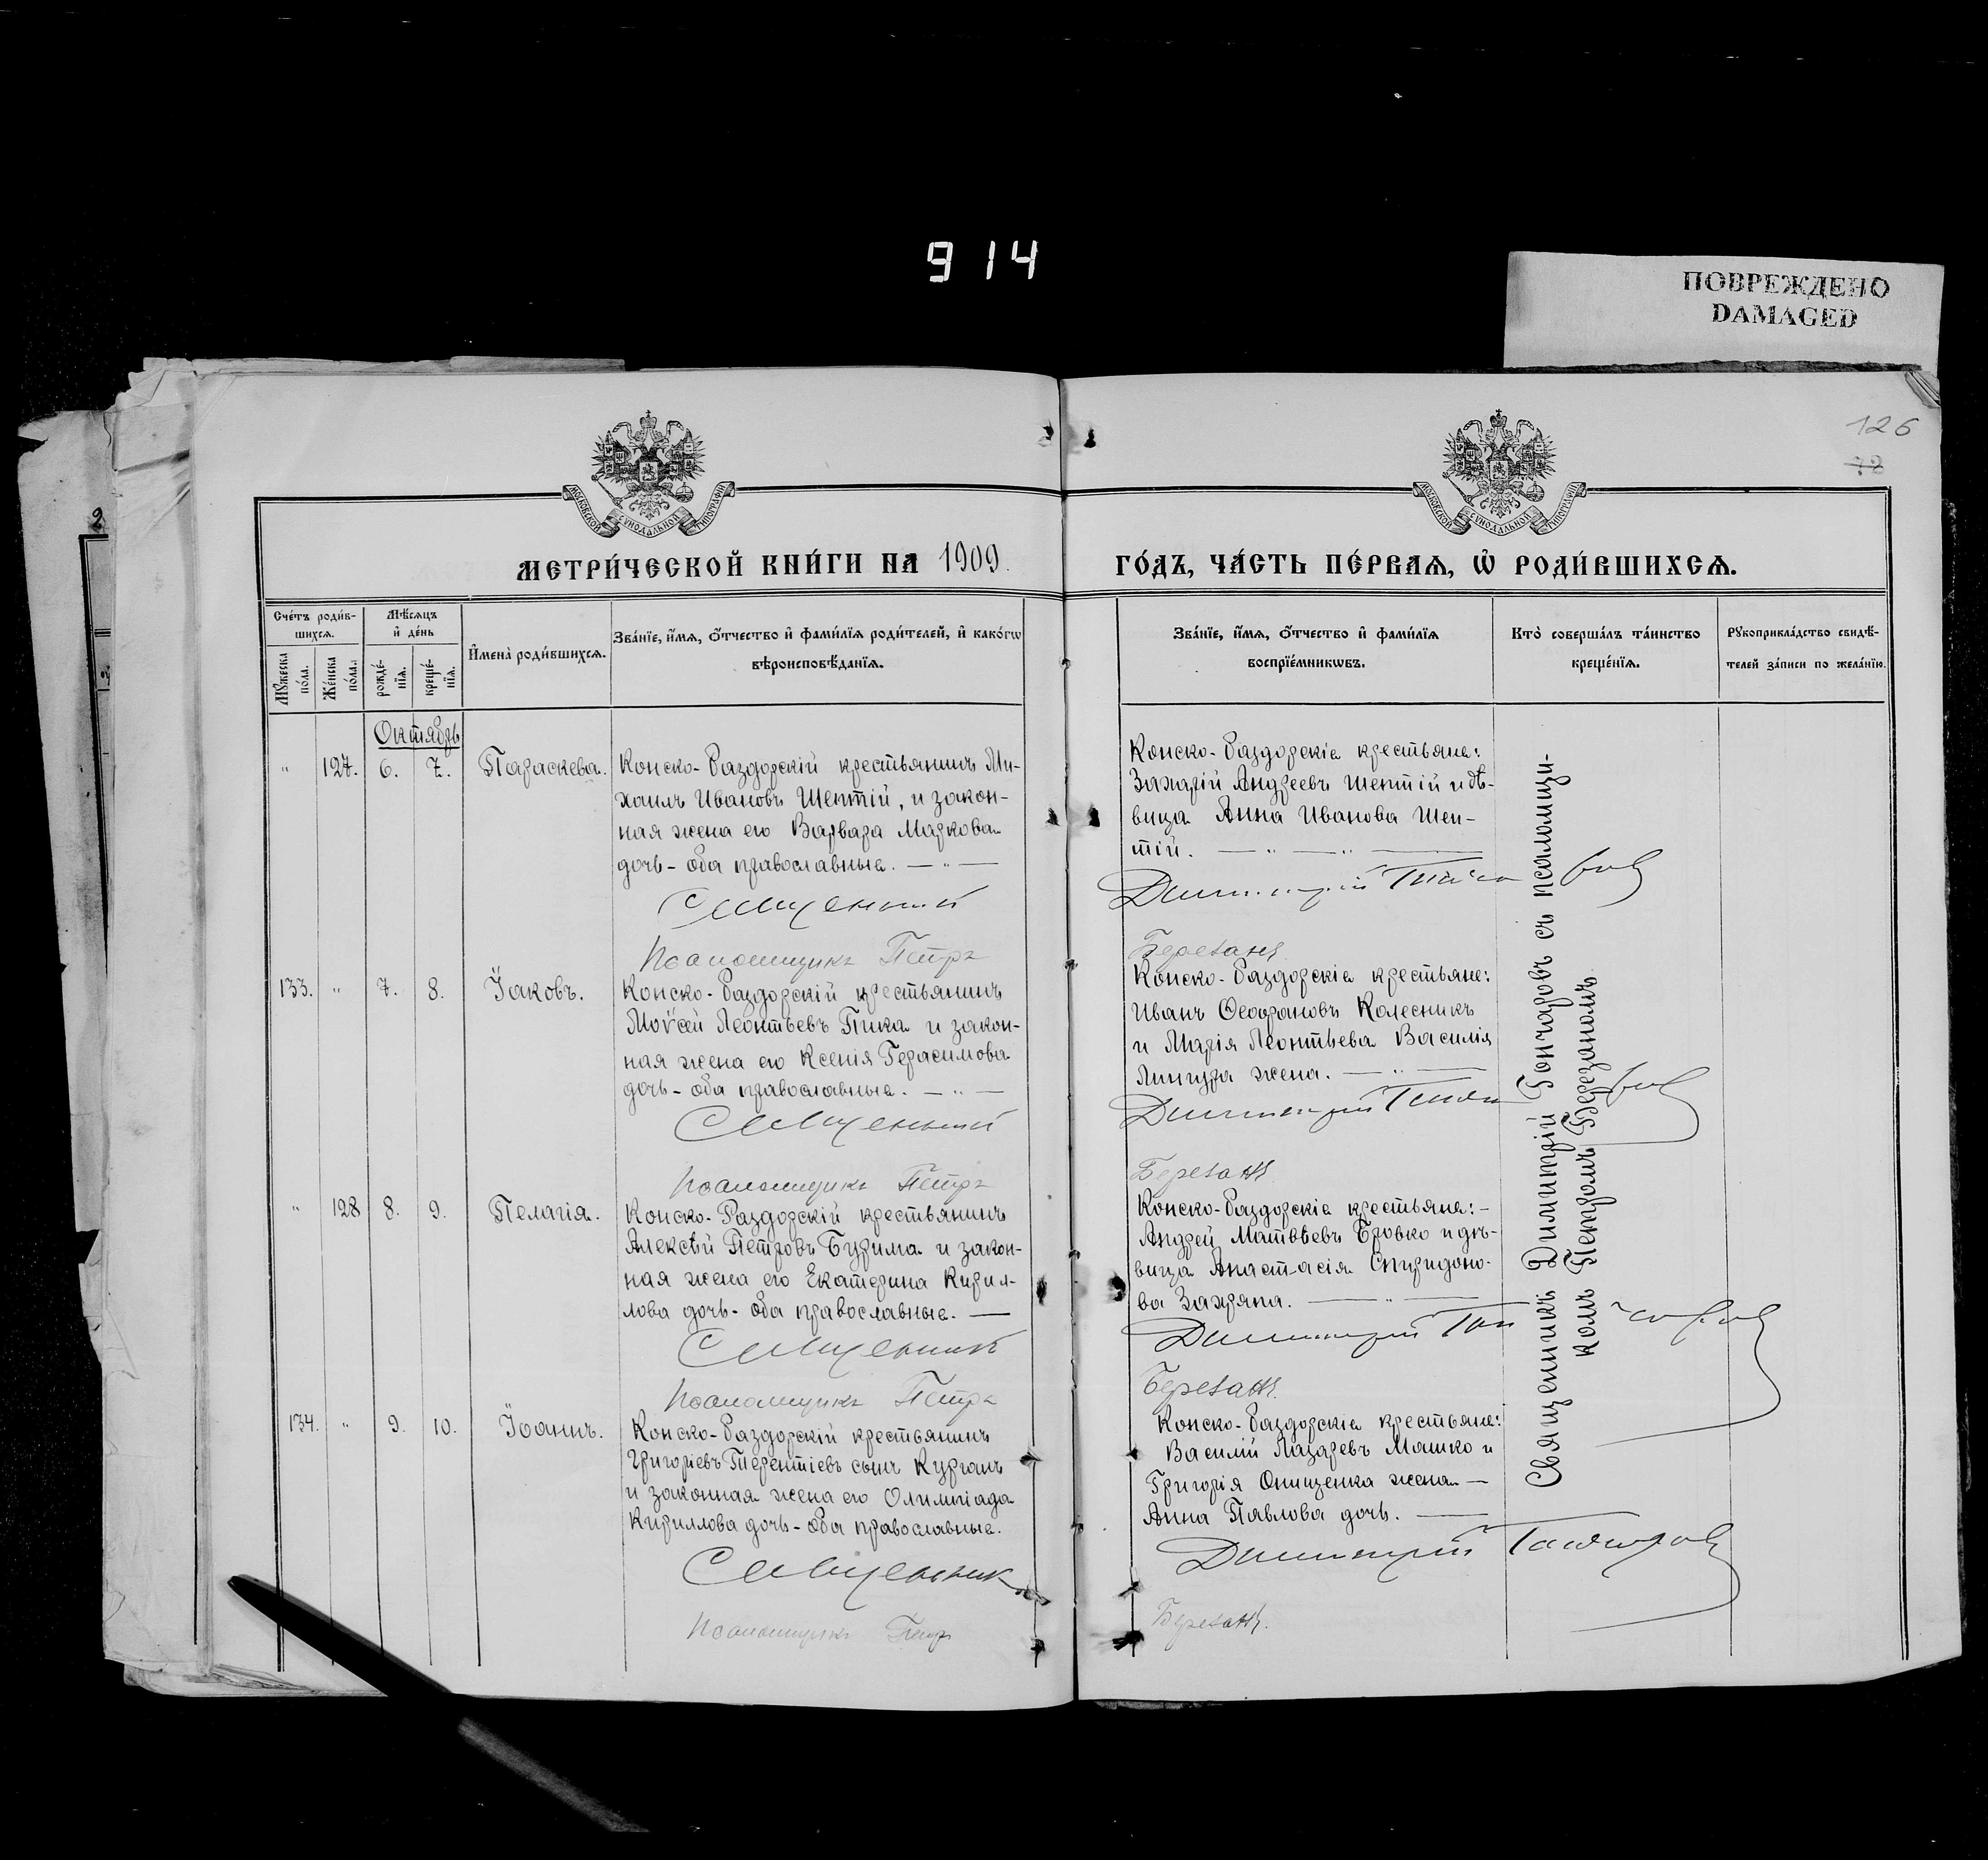 914
ПОВРЕЖДЕНО
DAMAGED
126
78
МОСКОВСКОЙ СѴНОДАЛЬНОЙ ТИПОГРАФІИ
МОСКОВСКОЙ СѴНОДАЛЬНОЙ ТИПОГРАФІИ
МЕТРИ́ЧЕСКОЙ КНИ́ГИ НА 1909.
ГО́ДЪ, ЧА́СТЬ ПЕ́РВАѦ, Ѡ҆ РОДИ́ВШИХСѦ.
Сче́тъ роди́в-
шихсѧ.
Мꙋ́жеска
по́ла.
Же́нска
по́ла.
Мѣ́сѧцъ
и҆ де́нь
рожде́-
нїѧ.
креще́-
нїѧ.
И҆мена̀ роди́вшихсѧ.
Зва́нїе, и҆́мѧ, ѻ҆́тчество и҆ фами́лїѧ роди́телей, и҆ како́гѡ
вѣроисповѣ́данїѧ.
Зва́нїе, и҆́мѧ, ѻ҆́тчество и҆ фами́лїѧ
воспрїе́мникѡвъ.
Кто̀ соверша́лъ та́инство
креще́нїѧ.
Рꙋкоприкла́дство свидѣ́-
телей за́писи по жела́нїю.
Октябрь
" 127. 6. 7. Параскева.
Конско-Раздорскій крестьянинъ Ми-
хаилъ Ивановъ Шептій, и закон-
ная жена его Варвара Маркова
дочь - оба православные. — " —
Священникъ
Псаломщикъ Петръ
Конско-Раздорскіе крестьяне:
Захарій Андреевъ Шептій и дѣ-
вица Анна Иванова Шеп-
тій. — " — " —
Димитрій Гончаровъ
Березанъ
133. " 7. 8. Іаковъ.
Конско-Раздорскій крестьянинъ
Моѵсей Леонтьевъ Пика и закон-
ная жена его Ксенія Герасимова
дочь - оба православные. — " —
Священникъ
Псаломщикъ Петръ
Конско-Раздорскіе крестьяне:
Иванъ Ѳеофановъ Колесникъ
и Марія Леонтьева Василія
Лингура жена. — " —
Димитрій Гончаровъ
Березанъ
" 128 8. 9. Пелагія.
Конско-Раздорскій крестьянинъ
Алексѣй Петровъ Бурима и закон-
ная жена его Екатерина Кирил-
лова дочь - оба православные. —
Священникъ
Псаломщикъ Петръ
Конско-Раздорскіе крестьяне: -
Андрей Матвѣевъ Бровко и дѣ-
вица Анастасія Спиридоно-
ва Захряпа. — " —
Димитрій Гончаровъ
Березанъ.
134. " 9. 10. Іоаннъ.
Конско-Раздорскій крестьянинъ
Григоріевъ Терентіевъ сынъ Курганъ
и законная жена его Олимпіада
Кириллова дочь - оба православные.
Священникъ
Псаломщикъ Петръ
Конско-Раздорскіе крестьяне:
Василій Лазаревъ Машко и
Григорія Онищенка жена —
Анна Павлова дочь. —
Димитрій Гончаровъ
Березанъ.
Священникъ Димитрій Гончаровъ съ псаломщи-
комъ Петромъ Березаномъ